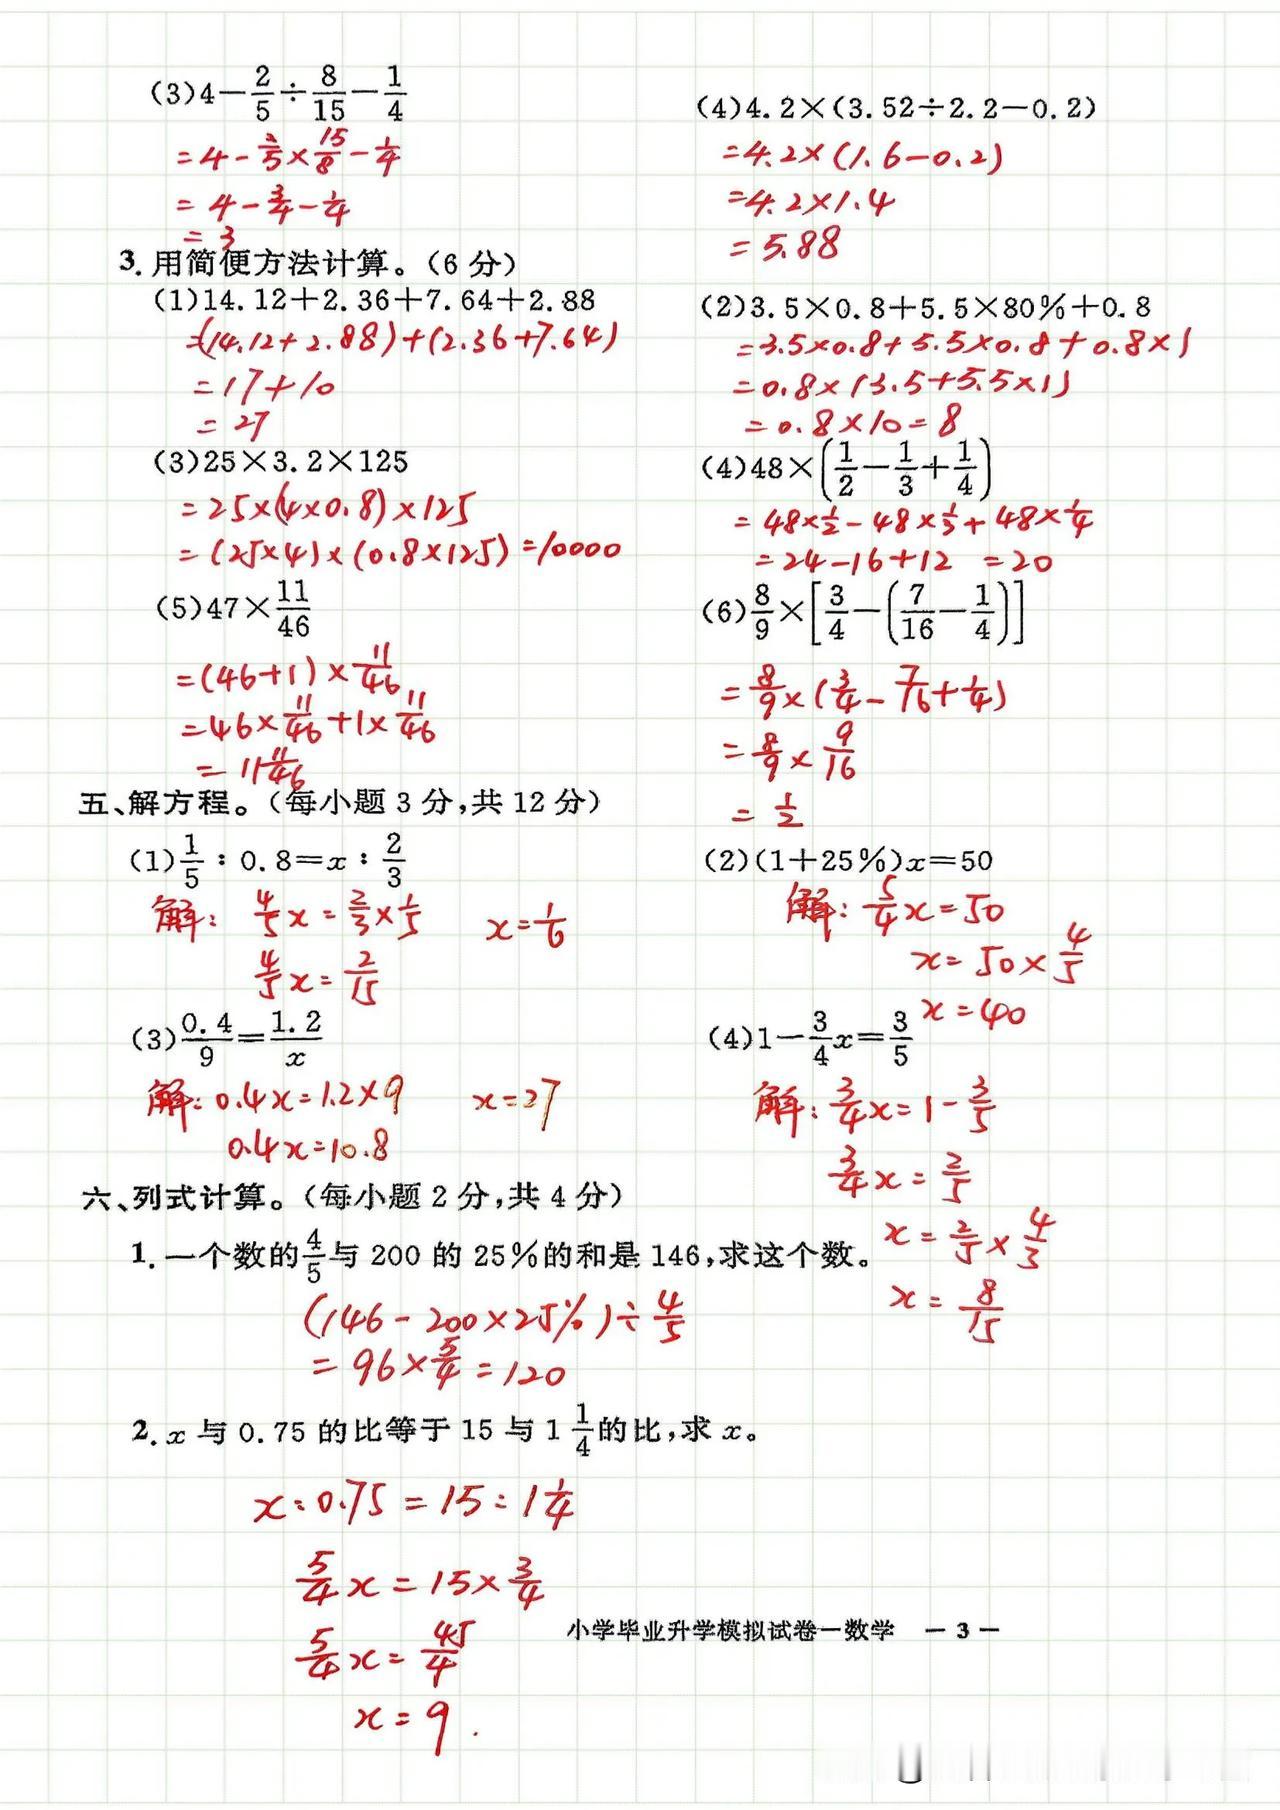 (3)4－2/5÷8/15－1/4
=4-2/5×15/8-1/4
=4-3/4-1/4
=3
(4)4.2×(3.52÷2.2－0.2)
=4.2×(1.6-0.2)
=4.2×1.4
=5.88
3.用简便方法计算。(6分)
(1)14.12＋2.36＋7.64＋2.88
=(14.12+2.88)+(2.36+7.64)
=17+10
=27
(2)3.5×0.8＋5.5×80%＋0.8
=3.5×0.8+5.5×0.8+0.8×1
=0.8×(3.5+5.5×1)
=0.8×10=8
(3)25×3.2×125
=25×(4×0.8)×125
=(25×4)×(0.8×125)=10000
(4)48×(1/2－1/3＋1/4)
=48×1/2-48×1/3+48×1/4
=24-16+12 =20
(5)47×11/46
=(46+1)×11/46
=46×11/46+1×11/46
=11 11/46
(6)8/9×[3/4－(7/16－1/4)]
=8/9×(3/4-7/16+1/4)
=8/9×9/16
=1/2
五、解方程。(每小题3分,共12分)
(1)1/5：0.8=x：2/3
解: 4/5x=2/3×1/5 x=1/6
4/5x=2/15
(2)(1＋25%)x=50
解: 5/4x=50
x=50×4/5
x=40
(3)0.4/9=1.2/x
解:0.4x=1.2×9 x=27
0.4x=10.8
(4)1－3/4x=3/5
解:3/4x=1-3/5
3/4x=2/5
x=2/5×4/3
x=8/15
六、列式计算。(每小题2分,共4分)
1.一个数的4/5与200的25%的和是146,求这个数。
(146-200×25%)÷4/5
=96×5/4=120
2.x与0.75的比等于15与1 1/4的比,求x。
x:0.75=15:1 1/4
5/4x=15×3/4
5/4x=45/4
x=9.
小学毕业升学模拟试卷一数学 －3－